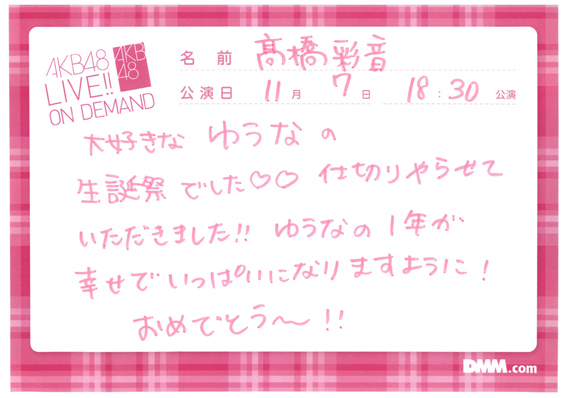 AKB48
LIVE!!
ON DEMAND
AKB
48
名 前 髙橋彩音
公演日 11月 7日 18:30 公演
大好きな ゆうなの
生誕祭 でした♡♡ 仕切りやらせて
いただきました!! ゆうなの1年が、
幸せでいっぱいになりますように!
おめでとう〜!!
DMM.com